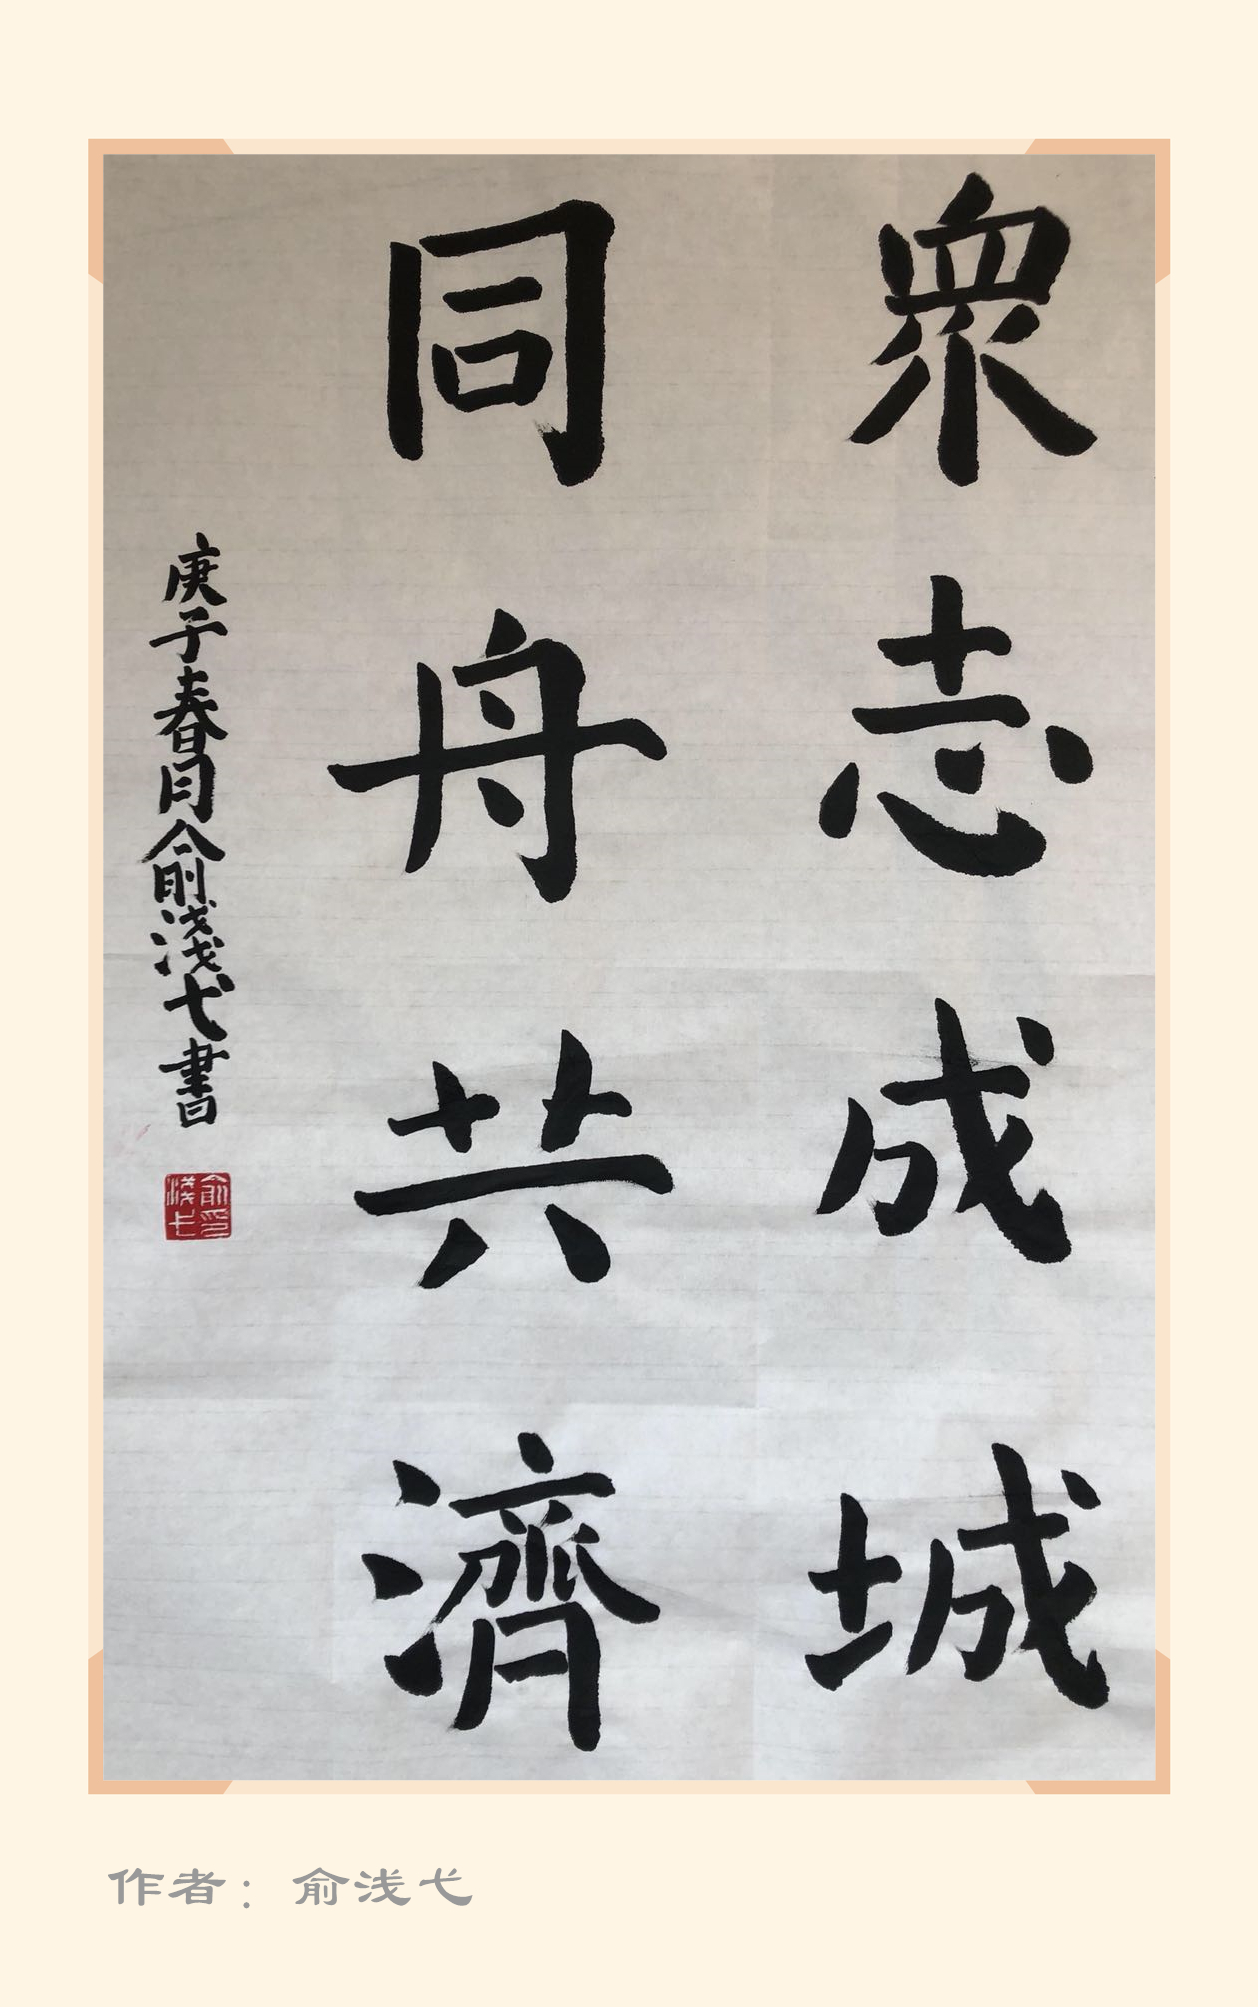 衆志成城
同舟共濟
庚子春月俞淺弋書
俞印
浅弋
作者：俞浅弋